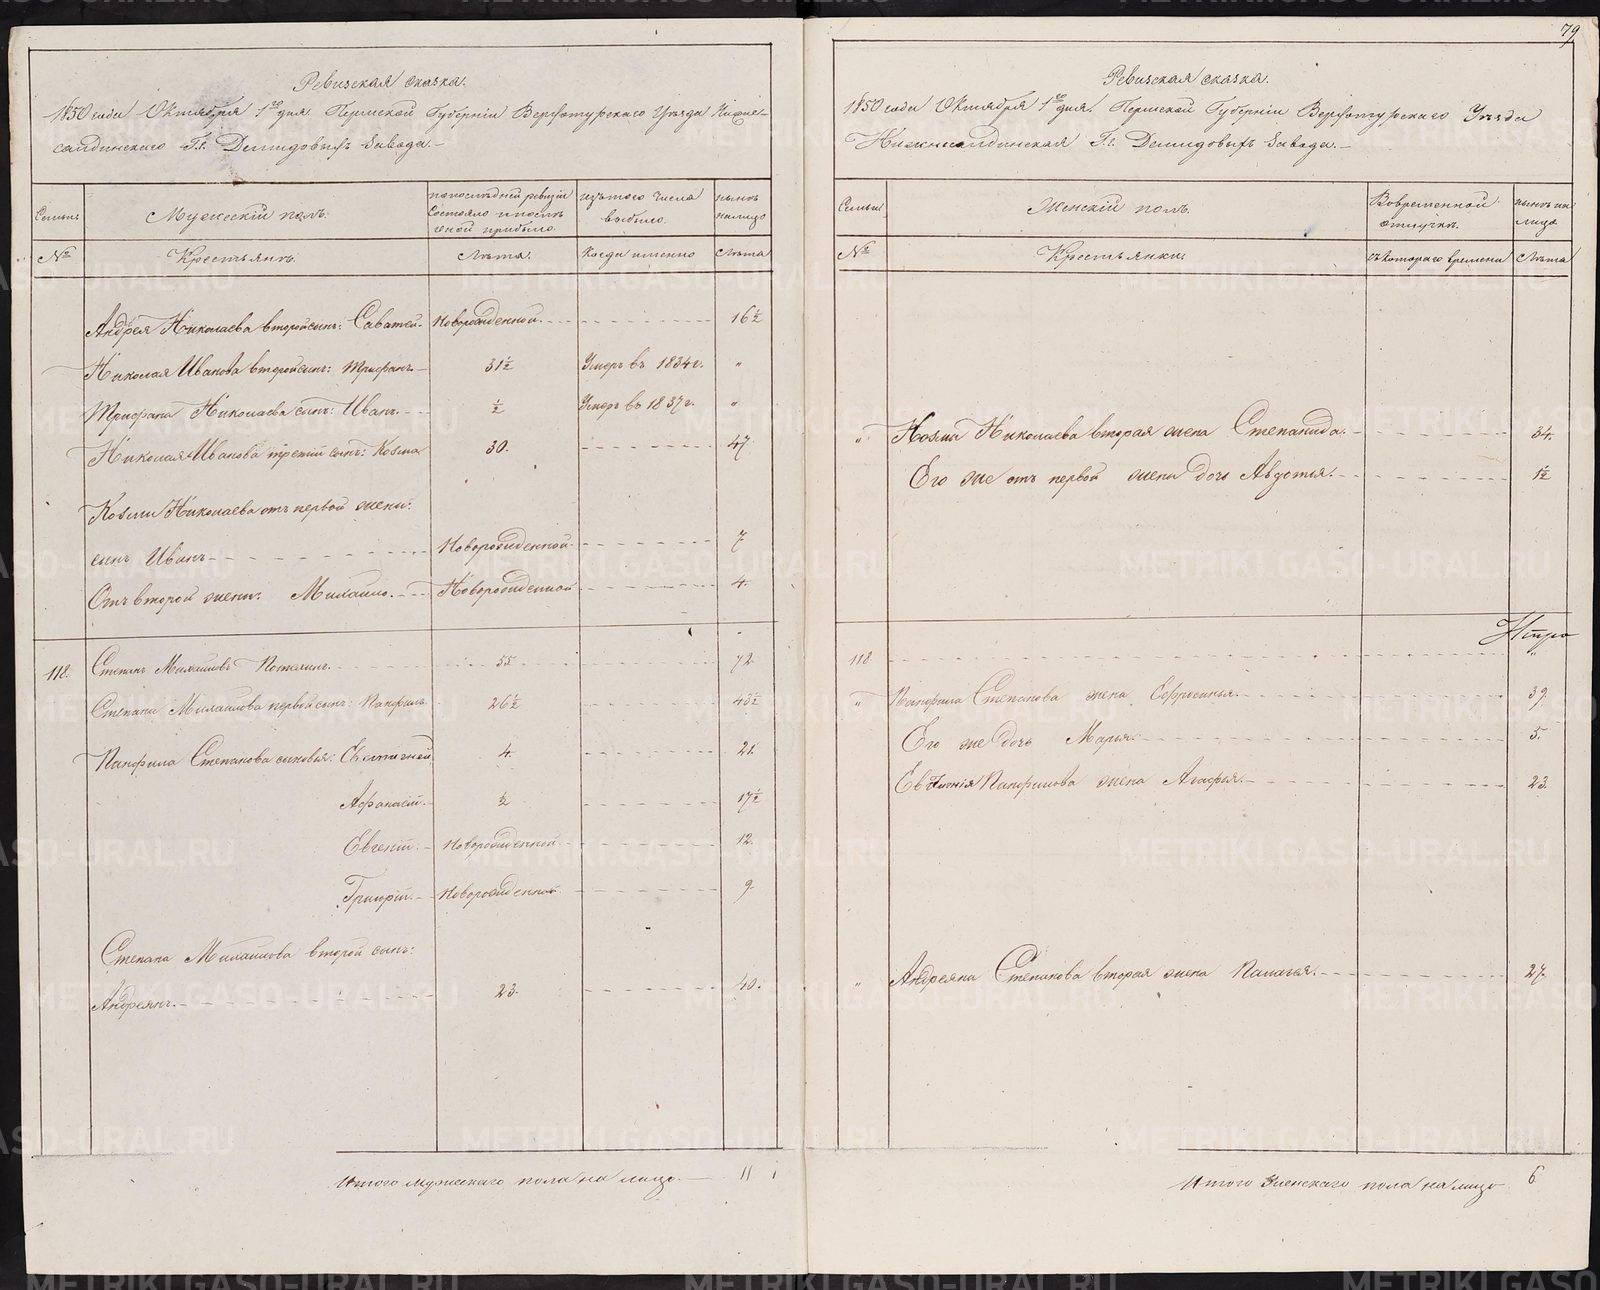 Ревизская сказка.
1850 года Октября 1го дня. Пермской Губернiи Верхотурского Уезда Нижне-
салдинского Гг. Демидовыхъ Завода.—
Семьи
Мужескiй полъ.
По последней ревизiи состояло и после оной прибыло.
Изъ того числа выбыло.
Ныне на лицо
№
Крестьянъ.
Лета.
Когда именно
Лета
Андрея Николаева второй сынъ: Саватей. Новорожденной. 16½
Николая Иванова второй сынъ: Трифанъ. 31½ Умеръ въ 1834 г. "
Трифана Николаева сынъ: Иванъ. ½ Умеръ въ 1837 г. "
Николая Иванова третiй сынъ: Козма 30. 47.
Козмы Николаева отъ первой жены:
сынъ Иванъ Новорожденной 7
Отъ второй жены: Михаило. Новорожденной 4.
118. Степанъ Михайловъ 55 72.
Степана Михаилова первой сынъ: Панфилъ 26½ 43½
Панфила Степанова сыновья: 4. 21.
Афанасiй. ½ 17½
Евгенiй. Новорожденной 12.
Григорiй. Новорожденной 9.
Степана Михаилова второй сынъ:
Андреянъ. 23. 40.
Итого мужескаго пола на лицо. — 11
79
Ревизская сказка.
1850 года Октября 1го дня. Пермской Губернiи Верхотурского Уезда
Нижнесалдинская Гг. Демидовыхъ Завода.—
Семьи
Женскiй полъ.
Во временной отлучке.
Ныне на лицо
№
Крестьянки.
Съ котораго времени
Лета
" Козмы Николаева вторая жена Степанида. 34.
Его же отъ первой жены дочь Авдотья. 1½
118.
" Панфила Степанова жена Ефросинья. 39.
Его же дочь Марья. 5.
Панфилова жена Агафья. 23.
" Андреяна Степанова вторая жена Палагья. 27.
Итого Женскаго пола на лицо 6
METRIKI.GASO-URAL.RU